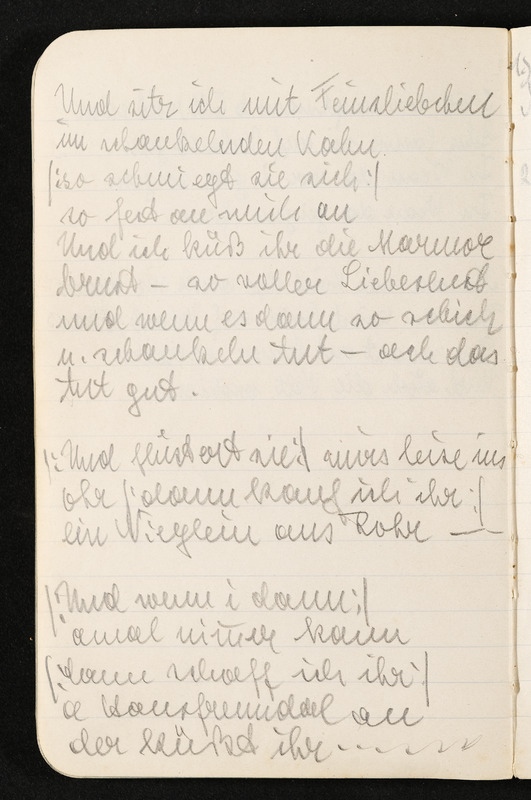 Und sitz ich mit Feinsliebchen
im schaukelnden Kahn.
|:so schmiegt sie sich:|
so fest an mich an
Und ich küß ihr die Marmor
brust – so voller Liebeslust
und wenn es dann so schick
u. schaukeln tut – ach das
tut gut.
|: Und flüstert sie :| mirs leise ins
ohr |: dann kauf ich ihr :|
ein Wieglein aus Rohr —
|: Und wenn i dann :|
amal nim̄er kann
|: dann schaff ich ihr :|
a Hausfreunderl an
der küßt ihr